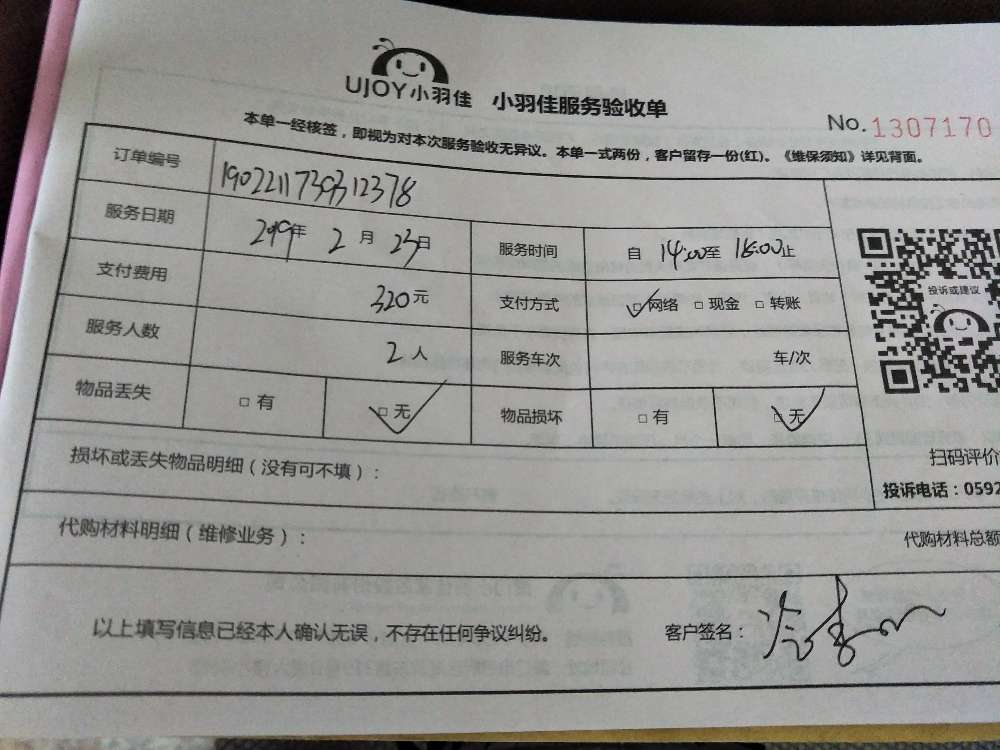 UJOY小羽佳 小羽佳服务验收单
No. 1307170
本单一经核签，即视为对本次服务验收无异议。本单一式两份，客户留存一份(红)。《维保须知》详见背面。
订单编号
服务日期 2019年 2月 23日 服务时间 自 14:00至 18:00止
支付费用 320元 支付方式 ☑网络 □现金 □转账
服务人数 2人 服务车次 车/次
物品丢失 □有 ☑无 物品损坏 □有 ☑无
投诉或建议
损坏或丢失物品明细（没有可不填）：
扫码评价
投诉电话：0592
代购材料明细（维修业务）：
代购材料总额
以上填写信息已经本人确认无误，不存在任何争议纠纷。 客户签名：